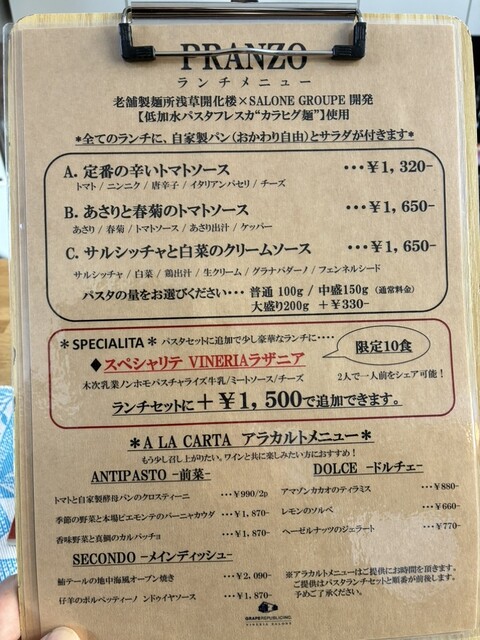 PRANZO
ランチメニュー
老舗製麺所浅草開化楼×SALONE GROUPE 開発
【低加水パスタフレスカ“カラヒグ麺”】使用
*全てのランチに、自家製パン(おかわり自由)とサラダが付きます*
A. 定番の辛いトマトソース ･･･¥1,320-
トマト / ニンニク / 唐辛子 / イタリアンパセリ / チーズ
B. あさりと春菊のトマトソース ･･･¥1,650-
あさり / 春菊 / トマトソース / あさり出汁 / ケッパー
C. サルシッチャと白菜のクリームソース ･･･¥1,650-
サルシッチャ / 白菜 / 鶏出汁 / 生クリーム / グラナパダーノ / フェンネルシード
パスタの量をお選びください･･･ 普通 100g / 中盛150g (通常料金)
大盛り200g +¥330-
*SPECIALITA* パスタセットに追加で少し豪華なランチに････
限定10食
◆スペシャリテ VINERIAラザニア
木次乳業ノンホモパスチャライズ牛乳/ミートソース/チーズ
2人で一人前をシェア可能!
ランチセットに+¥1,500で追加できます。
*A LA CARTA アラカルトメニュー*
もう少し召し上がりたい。ワインと共に楽しみたい方におすすめ!
ANTIPASTO -前菜-
トマトと自家製酵母パンのクロスティーニ ･･･¥990/2p
季節の野菜と本場ピエモンテのバーニャカウダ ･･･¥1,870-
香味野菜と真鯛のカルパッチョ ･･･¥1,870-
DOLCE -ドルチェ-
アマゾンカカオのティラミス ･･･¥880-
レモンのソルベ ･･･¥660-
ヘーゼルナッツのジェラート ･･･¥770-
SECONDO -メインディッシュ-
鮪テールの地中海風オーブン焼き ･･･¥2,090-
仔羊のポルペッティーノ ンドゥイヤソース ･･･¥1,870-
※アラカルトメニューはご提供にお時間を頂きます。
ご提供はパスタランチセットと順番が前後します。
予めご了承ください。
GRAPEREPUBLIC INC
VINERIA SALONE